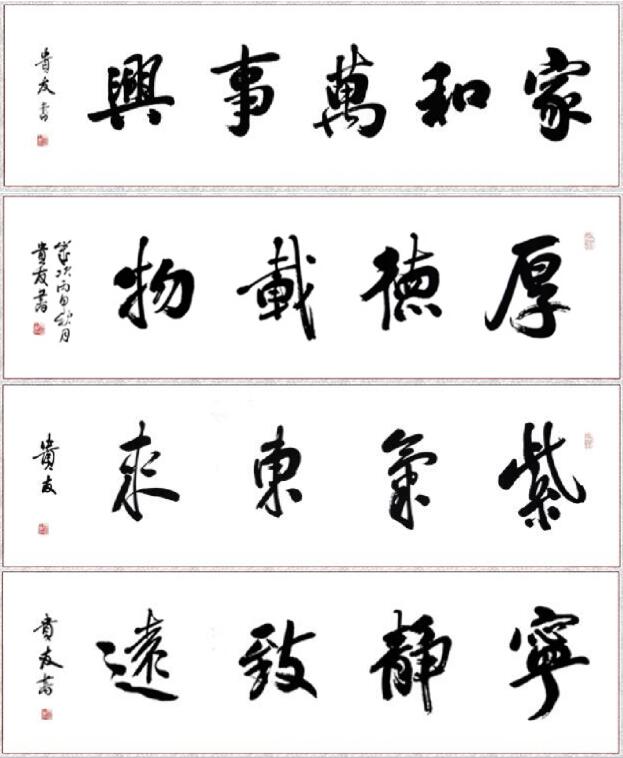 家和萬事興
貴友書
厚德載物
歲次丙申秋月
貴友書
紫氣東來
貴友
寧靜致遠
貴友書